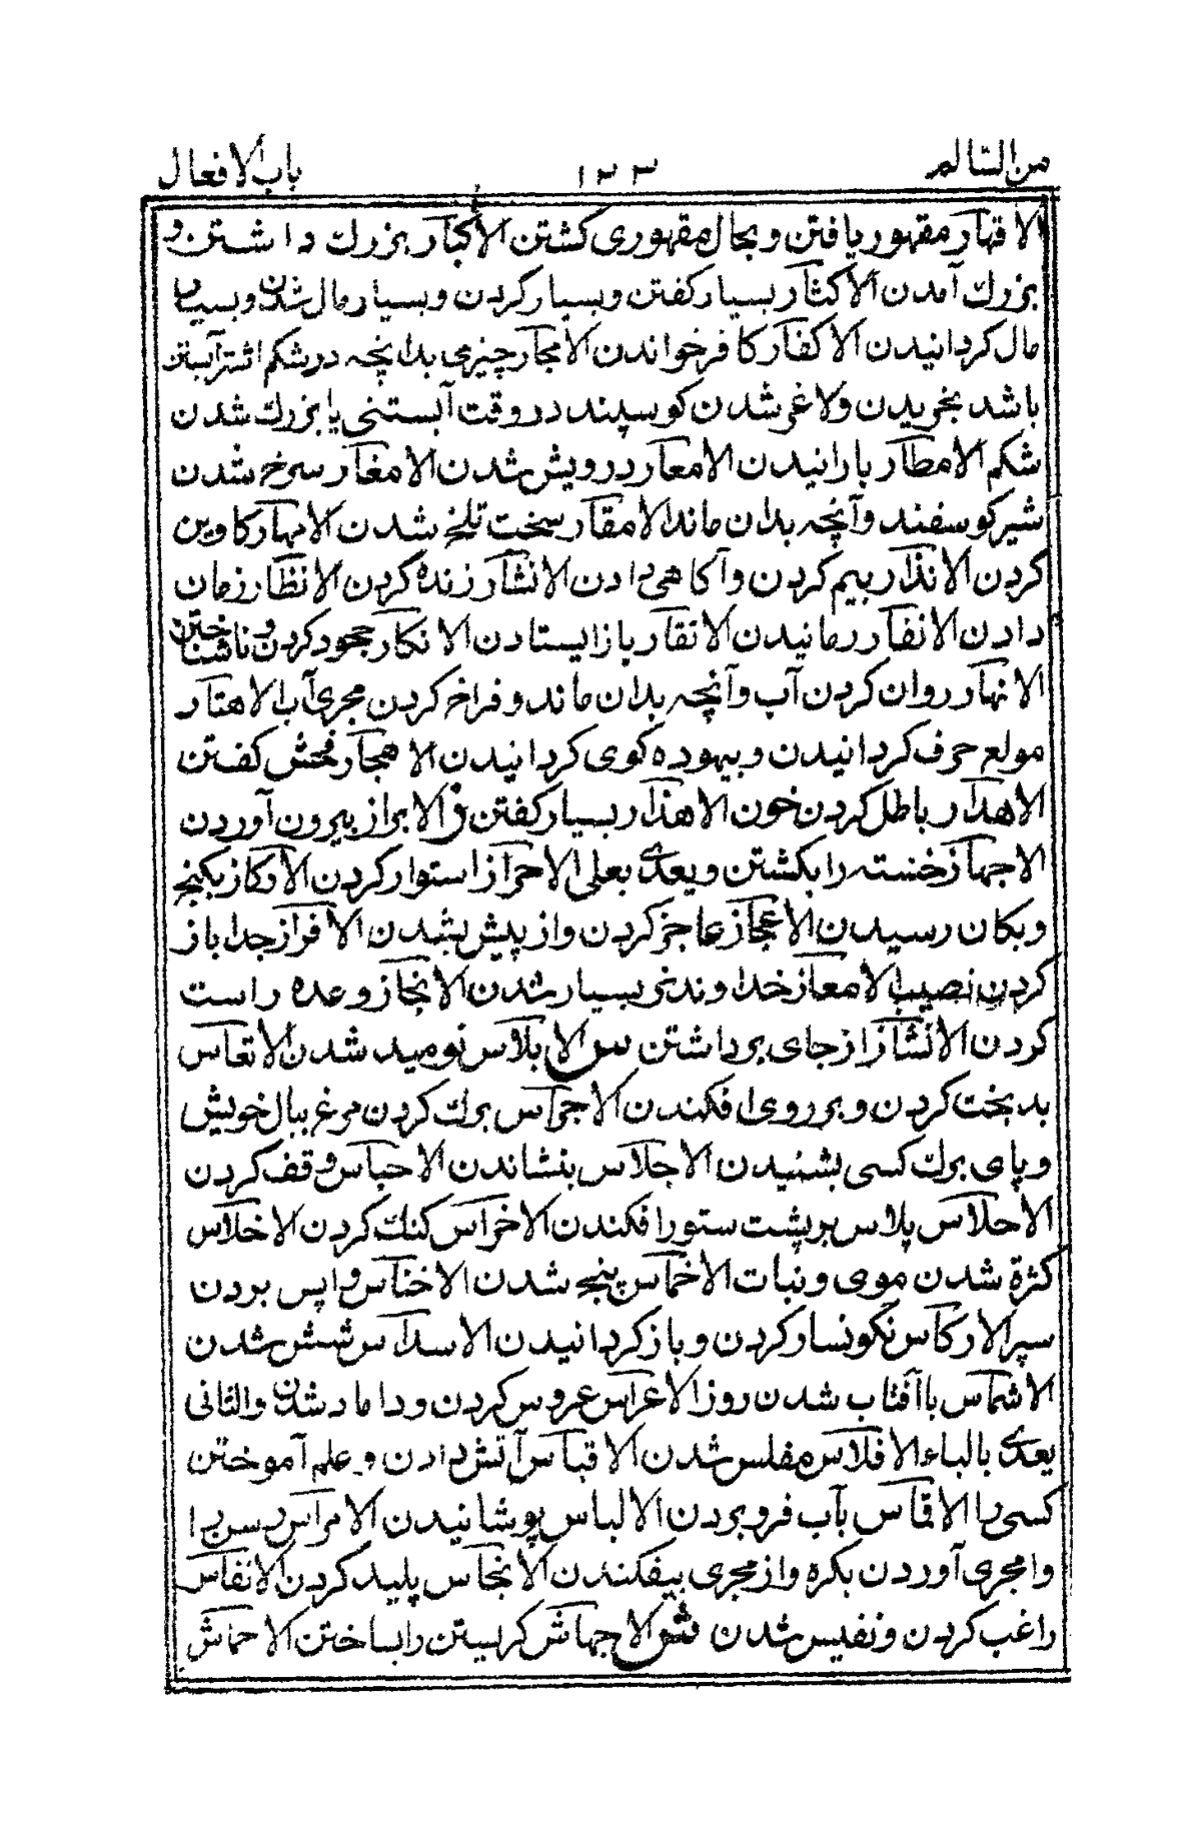 من السالم ١٢٣ باب الافعال
الاقهار مقهور یافتن و بحال مقهوری کشتن الاکبار بزرك داشتن و
بزرك آمدن الاکثار بسیار کفتن و بسیار کردن و بسیار مال شدن و بسیار
مال کردانیدن الاکفار کافر خواندن الامجار چیزی بدانچه در شکم اشتر آبستن
باشد بخریدن و لاغر شدن کوسپند در وقت آبستنی یا بزرك شدن
شکم الامطار بارانیدن الامعار درویش شدن الامغار سرخ شدن
شیر کوسفند و آنچه بدان ماند الامقار سخت تلخ شدن الامهار کاوین
کردن الانذار بیم کردن و آکاهی دادن الانشار زنده کردن الانظار زمان
دادن الانفار رمانیدن الانقار باز ایستادن الانکار جحود کردن و ناشناختن
الانهار روان کردن آب و آنچه بدان ماند و فراخ کردن مجری آب الاهتار
مولع حرف کردانیدن و بیهوده کوی کردانیدن الاهجار فحش کفتن
الاهدار باطل کردن خون الاهذار بسیار کفتن ز الابراز بیرون آوردن
الاجهاز خسته را بکشتن و یعدی بعلی الاحراز استوار کردن الارکاز بکنج
و بکان رسیدن الاعجاز عاجز کردن و از پیش بشدن الافراز جدا باز
کردن نصیب الامعاز خداوند بز بسیار شدن الانجاز وعده راست
کردن الانشاز از جای برداشتن س الابلاس نومید شدن الاتعاس
بدبخت کردن و بر روی افکندن الاجراس برك کردن مرغ ببال خویش
و پای برك کسی بشنیدن الاجلاس بنشاندن الاحباس وقف کردن
الاحلاس پلاس بر پشت ستور افکندن الاخراس کنك کردن الاخلاس
کژه شدن موی و نبات الاخماس پنج شدن الاخناس واپس بردن
سپر الارکاس نکونسار کردن و باز کردانیدن الاسداس شش شدن
الاشماس با آفتاب شدن روز الاعراس عروس کردن و داماد شدن والثانی
یعدی بالباء الافلاس مفلس شدن الاقباس آتش دادن و علم آموختن
کسی را الاقماس بآب فرو بردن الالباس پوشانیدن الامراس رسن را
وا مجری آوردن بکره و از مجری بیفکندن الانجاس پلید کردن الانفاس
راغب کردن و نفیس شدن ش الاجهاش کریستن را بساختن الاحماش